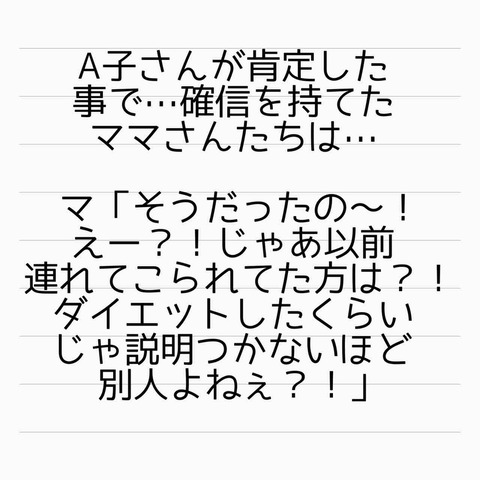 A子さんが肯定した
事で…確信を持てた
ママさんたちは…
マ「そうだったの〜！
えー？！じゃあ以前
連れてこられてた方は？！
ダイエットしたくらい
じゃ説明つかないほど
別人よねぇ？！」